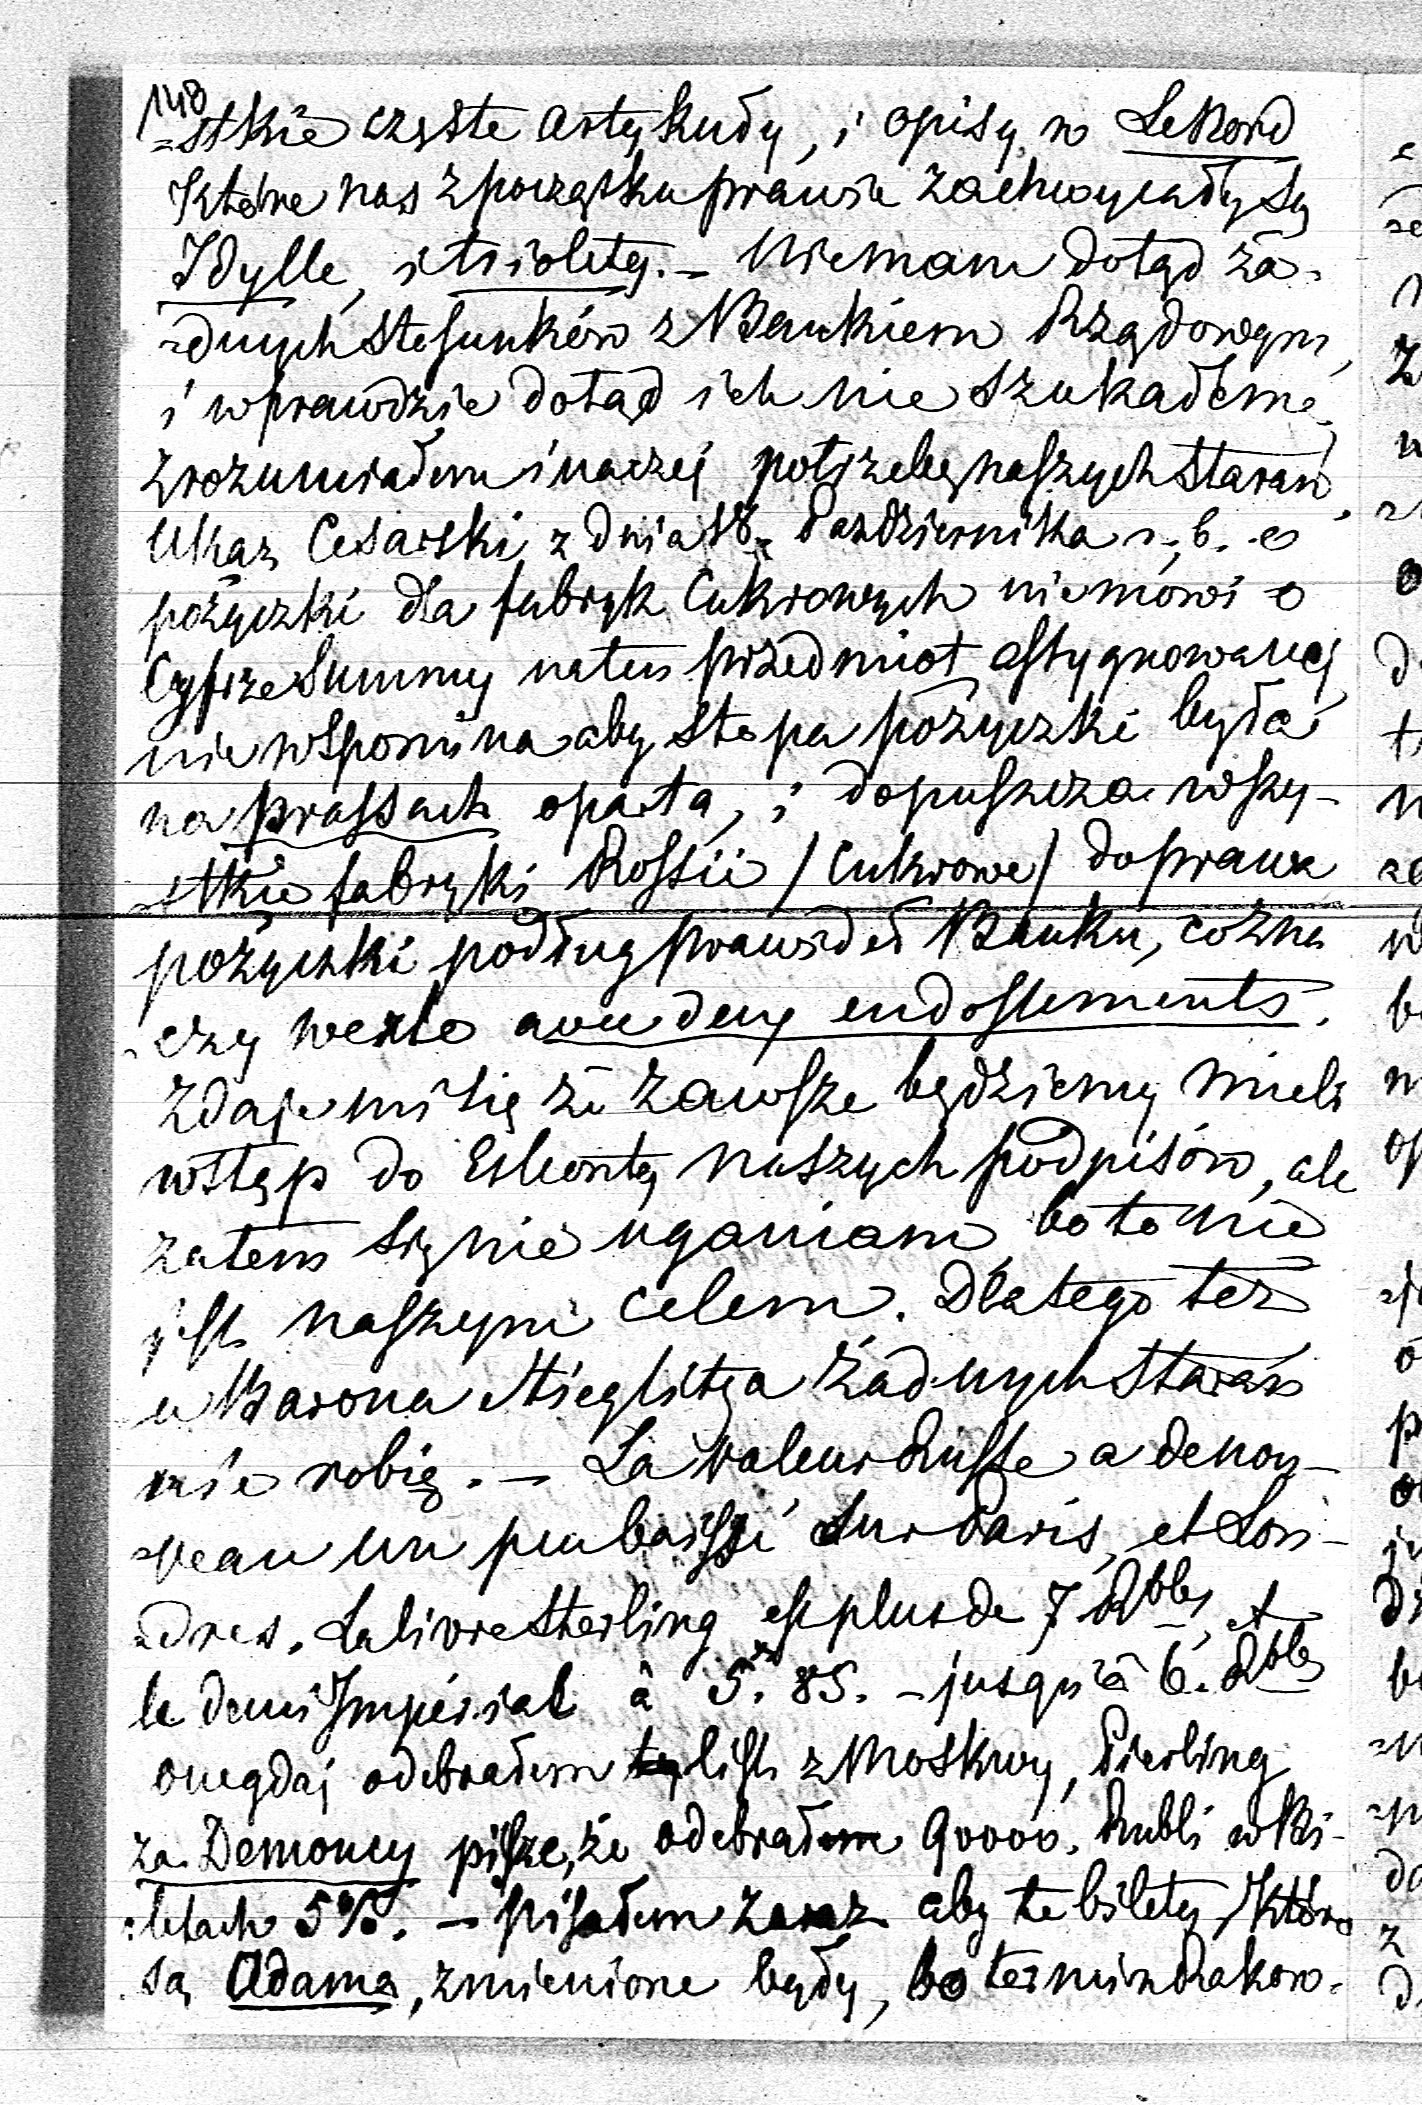 148
=stkie częste artykuły, i opisy w Le Nord
Które nas z początku prawie zachwycały są
Idylle, i triolety. – Niemam dotąd ża-
=dnych stosunków z Bankiem Rządowym,
i wprawdzie dotąd ich nie szukałem,
zrozumiałem inaczej potrzebę naszych starań,
Ukaz Cesarski z dnia 18. Października r. b. o
pożyczki dla fabryk Cukrowych niemówi o
Cyfrze Summy na ten przedmiot assygnowanej
nie wspomina aby stopa pożyczki była
na prassach oparta, i dopuszcza wszy-
=stkie fabryki Rossii /Cukrowe/ do prawa
pożyczki podług prawideł Banku, co zna
=czy wexle avec deux endossements.
Zdaje mi się że zawsze będziemy mieli
wstęp do Eskonty naszych podpisów, ale
zatem się nie uganiam, bo to nie
jest naszym celem. Dlatego też
u Barona Stieglitza żadnych starań
nie robię. – La valeur Russe a denou-
=veau un peu baissé sur Paris, et Lon-
=dres. La livre Sterling est plus de 7 Rbles, et
le demi Impérial à 5. 85. – jusqu'à 6. Rbles
onegdaj odebrałem list z Moskwy, Pierling
za Demoncy pisze, że odebrałem 90000. Rubli w Bi-
=letach 5%. – pisałem zaraz aby te bilety, które
są Adama, zmienione były, bo termin Rakow-